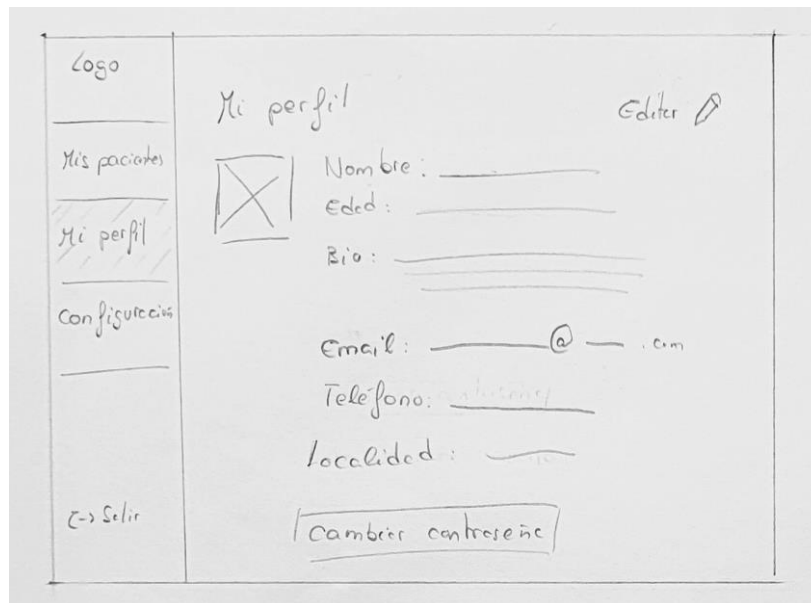 Logo
Mis pacientes
Mi perfil
Configuración
Salir
Mi perfil
Editar
Nombre:
Edad:
Bio:
Email: @ .com
Teléfono:
Localidad:
Cambiar contraseña